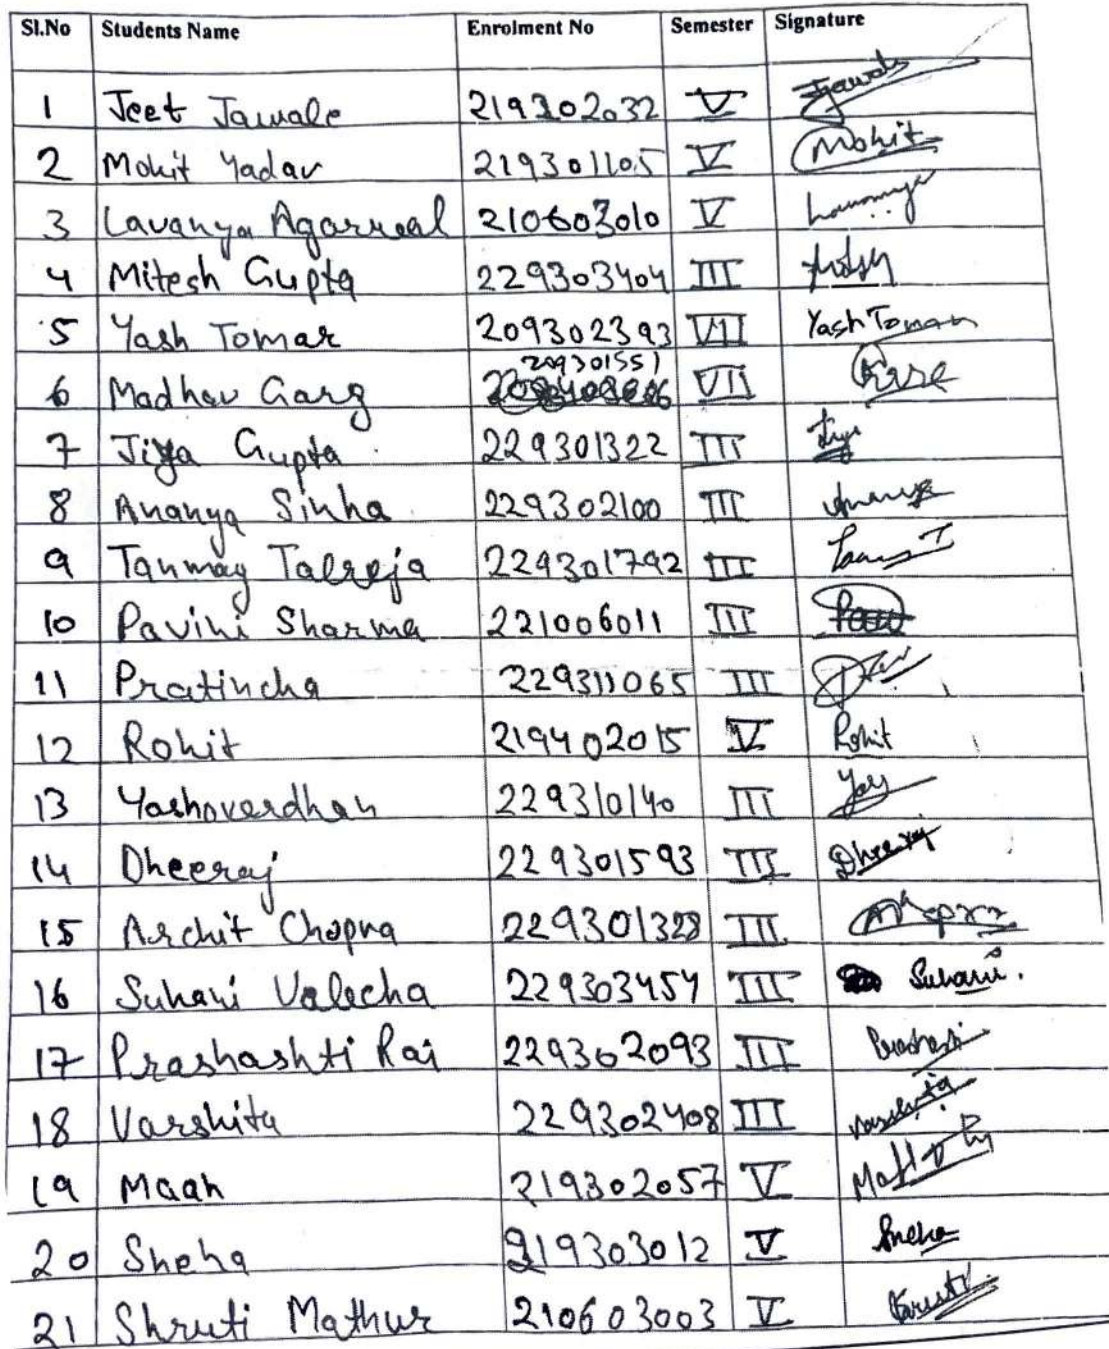 Sl.No Students Name Enrolment No Semester Signature
1 Jeet Jawale 219302032 V Jawale
2 Mohit Yadav 219301105 V Mohit
3 Lavanya Agarwal 210603010 V Lavanya
4 Mitesh Gupta 229303404 III
5 Yash Tomar 209302393 VII Yash Tomar
6 Madhav Garg 209301551 VII
7 Jiya Gupta 229301322 III Jiya
8 Ananya Sinha 229302100 III Ananya
9 Tanmay Talreja 229301792 III
10 Pavini Sharma 221006011 III
11 Pratincha 229311065 III
12 Rohit 219402015 V Rohit
13 Yashoverdhan 229310140 III
14 Dheeraj 229301593 III Dheeraj
15 Archit Chopra 229301328 III
16 Suhani Valecha 229303454 III Suhani.
17 Prashashti Rai 229302093 III
18 Varshita 229302408 III Varshita
19 Maan 219302057 V
20 Sneha 219303012 V Sneha
21 Shruti Mathur 210603003 V Shruti